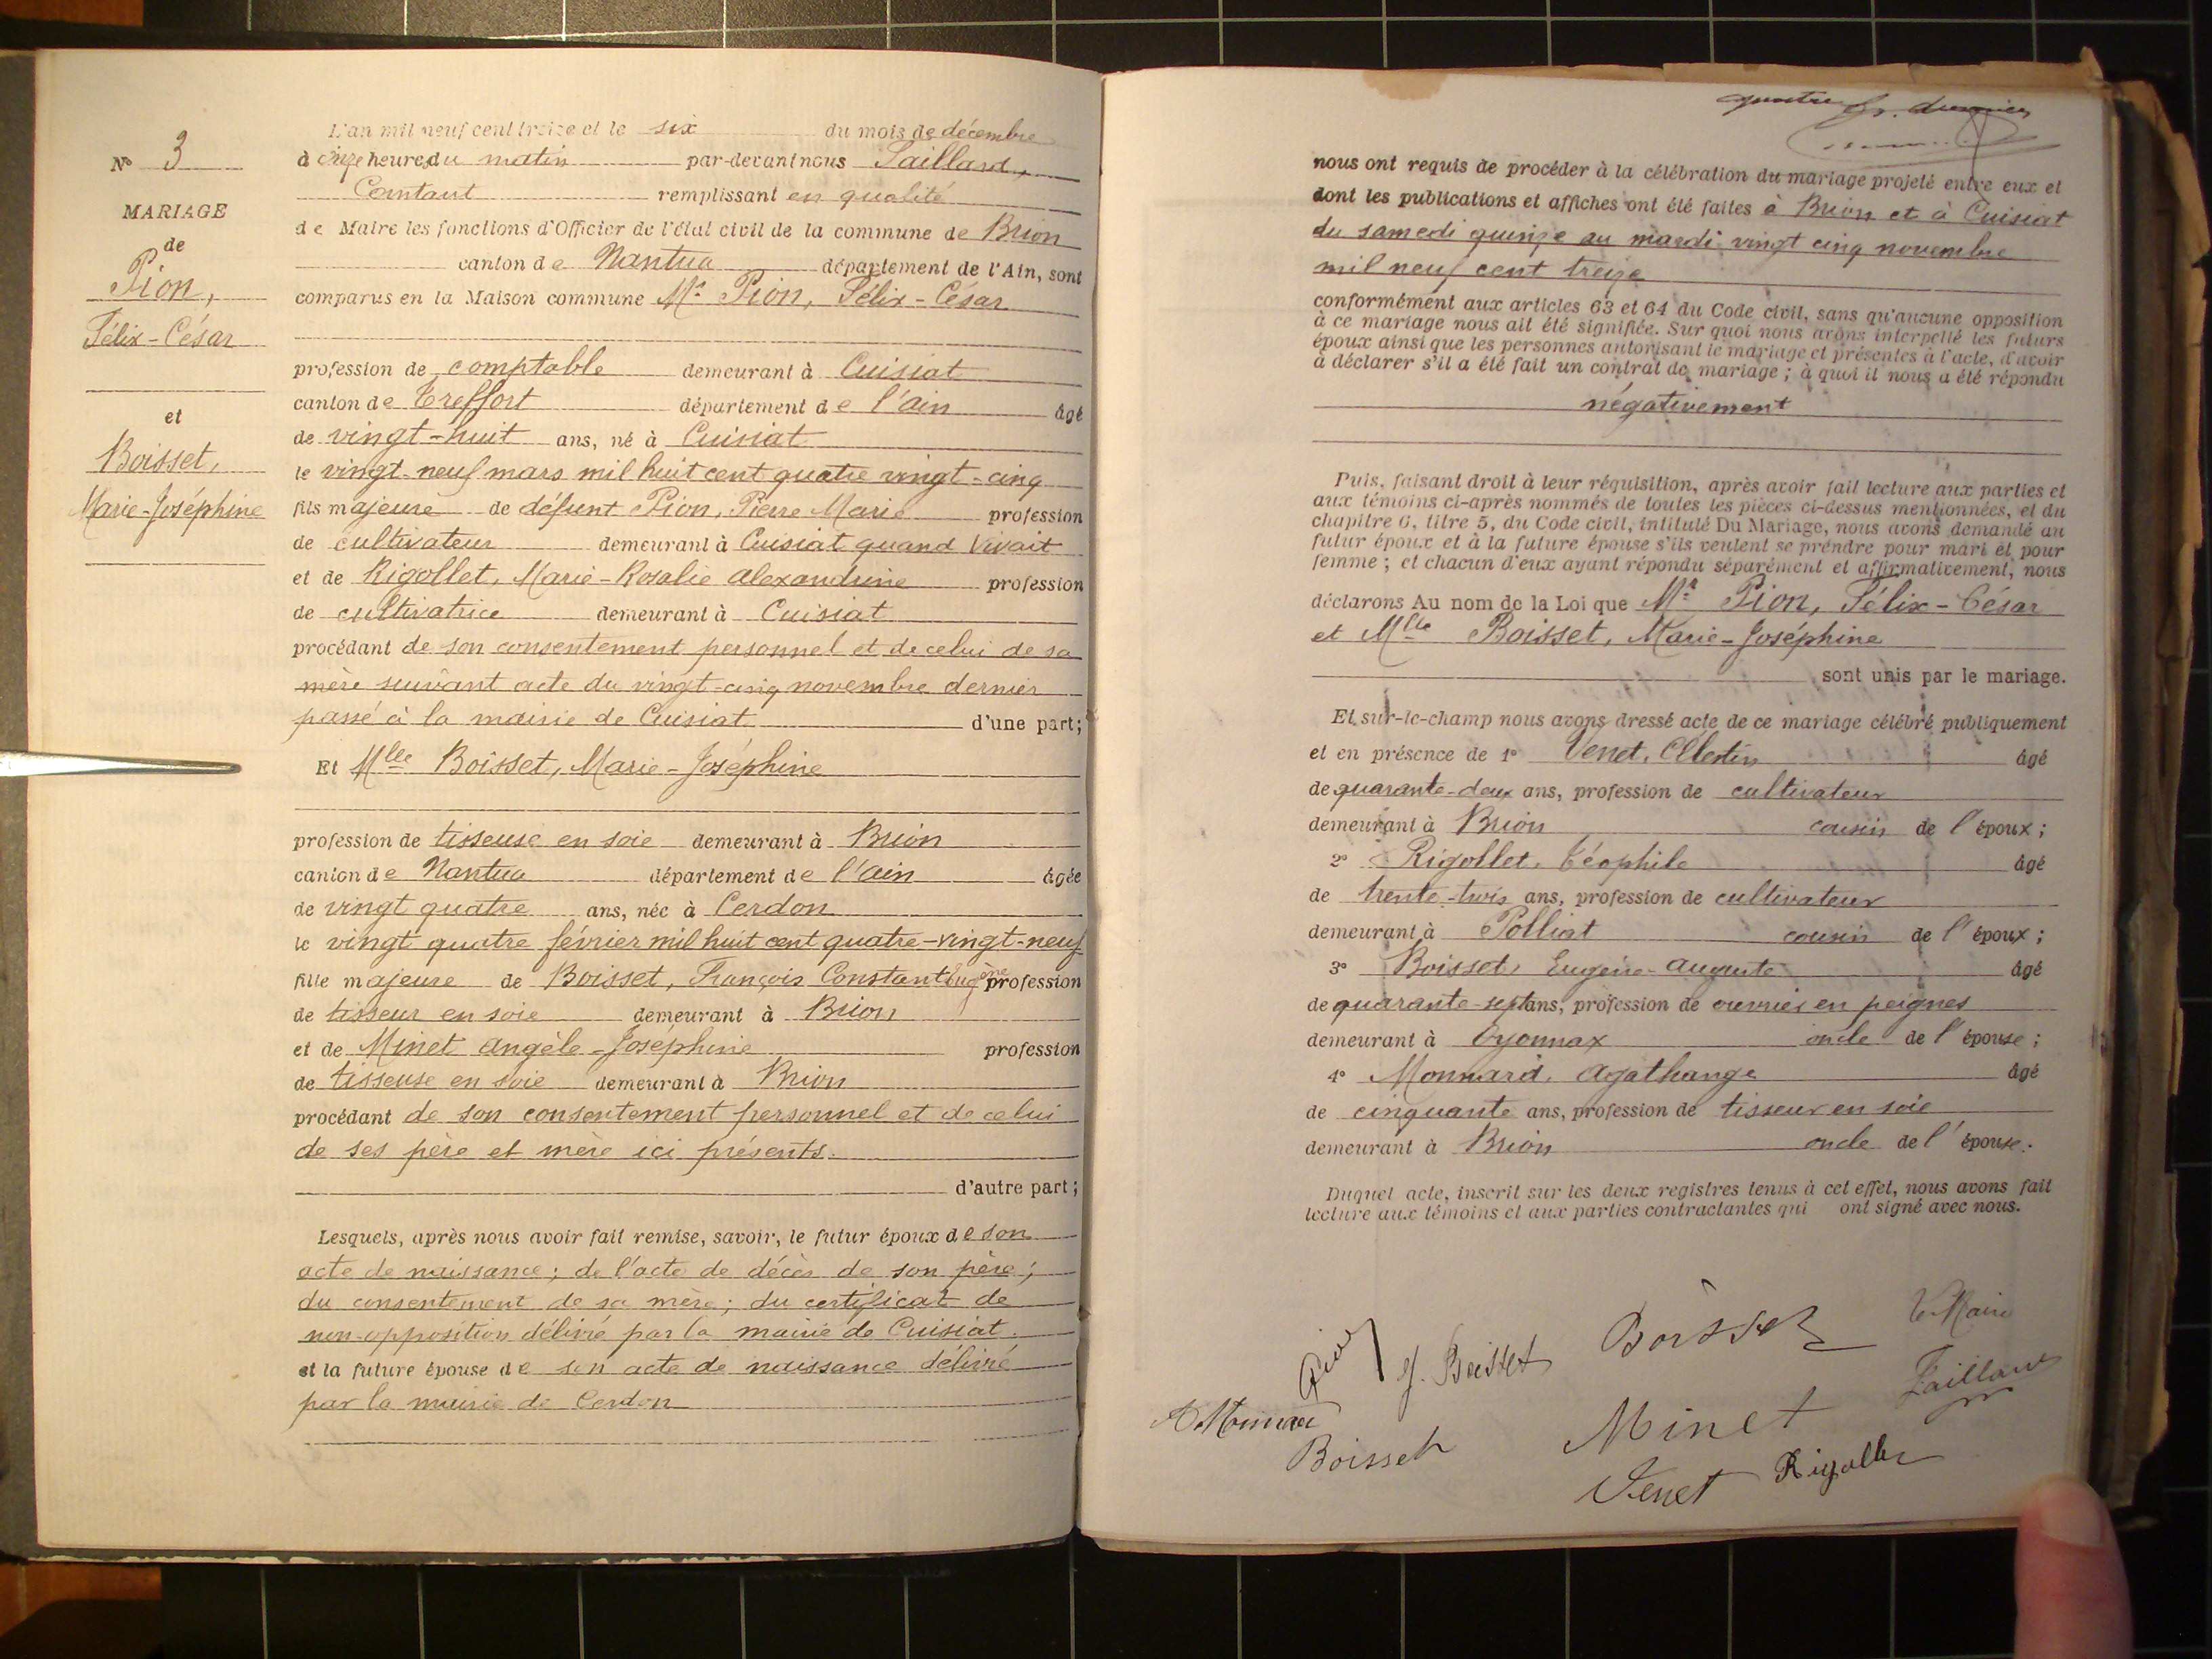 N° 3
MARIAGE
de
Pion,
Félix-César
et
Boisset,
Marie-Joséphine
L'an mil neuf cent treize et le six du mois de décembre
à onze heures du matin par-devant nous Taillard,
Constant remplissant en qualité
de Maire les fonctions d'Officier de l'état civil de la commune de Brion
canton de Nantua département de l'Ain, sont
comparus en la Maison commune Mr Pion, Félix-César
profession de comptable demeurant à Cuisiat
canton de Treffort département de l'ain âgé
de vingt-huit ans, né à Cuisiat
le vingt-neuf mars mil huit cent quatre vingt-cinq
fils majeure de défunt Pion, Pierre Marie profession
de cultivateur demeurant à Cuisiat quand vivait
et de Rigollet, Marie-Rosalie Alexandrine profession
de cultivatrice demeurant à Cuisiat
procédant de son consentement personnel et de celui de sa
mère suivant acte du vingt-cinq novembre dernier
passé à la mairie de Cuisiat d'une part;
Et Mlle Boisset, Marie-Joséphine
profession de tisseuse en soie demeurant à Brion
canton de Nantua département de l'ain âgée
de vingt quatre ans, née à Cerdon
le vingt quatre février mil huit cent quatre-vingt-neuf
fille majeure de Boisset, François Constant Eugène profession
de tisseur en soie demeurant à Brion
et de Minet Angèle-Joséphine profession
de tisseuse en soie demeurant à Brion
procédant de son consentement personnel et de celui
de ses père et mère ici présents.
d'autre part;
Lesquels, après nous avoir fait remise, savoir, le futur époux de son
acte de naissance; de l'acte de décès de son père;
du consentement de sa mère; du certificat de
non-opposition délivré par la mairie de Cuisiat.
et la future épouse de son acte de naissance délivré
par la mairie de Cerdon
quatre
nous ont requis de procéder à la célébration du mariage projeté entre eux et
dont les publications et affiches ont été faites à Brion et à Cuisiat
du samedi quinze au mardi vingt cinq novembre
mil neuf cent treize
conformément aux articles 63 et 64 du Code civil, sans qu'aucune opposition
à ce mariage nous ait été signifiée. Sur quoi nous avons interpellé les futurs
époux ainsi que les personnes autorisant le mariage et présentes à l'acte, d'avoir
à déclarer s'il a été fait un contrat de mariage; à quoi il nous a été répondu
négativement
Puis, faisant droit à leur réquisition, après avoir fait lecture aux parties et
aux témoins ci-après nommés de toutes les pièces ci-dessus mentionnées, et du
chapitre 6, titre 5, du Code civil, intitulé Du Mariage, nous avons demandé au
futur époux et à la future épouse s'ils veulent se prendre pour mari et pour
femme; et chacun d'eux ayant répondu séparément et affirmativement, nous
déclarons Au nom de la Loi que Mr Pion, Félix-César
et Mlle Boisset, Marie-Joséphine
sont unis par le mariage.
Et sur-le-champ nous avons dressé acte de ce mariage célébré publiquement
et en présence de 1° Venet, Célestin âgé
de quarante-deux ans, profession de cultivateur
demeurant à Brion cousin de l'époux;
2° Rigollet, Téophile âgé
de trente-trois ans, profession de cultivateur
demeurant à Polliat cousin de l'époux;
3° Boisset, Eugène-Auguste âgé
de quarante-sept ans, profession de ouvrier en peignes
demeurant à Oyonnax oncle de l'épouse;
4° Monnard, Agathange âgé
de cinquante ans, profession de tisseur en soie
demeurant à Brion oncle de l'épouse.
Duquel acte, inscrit sur les deux registres tenus à cet effet, nous avons fait
lecture aux témoins et aux parties contractantes qui ont signé avec nous.
Le Maire
Pion J. Boisset Boisset Taillard
Minet
Boisset
Venet Rigollet